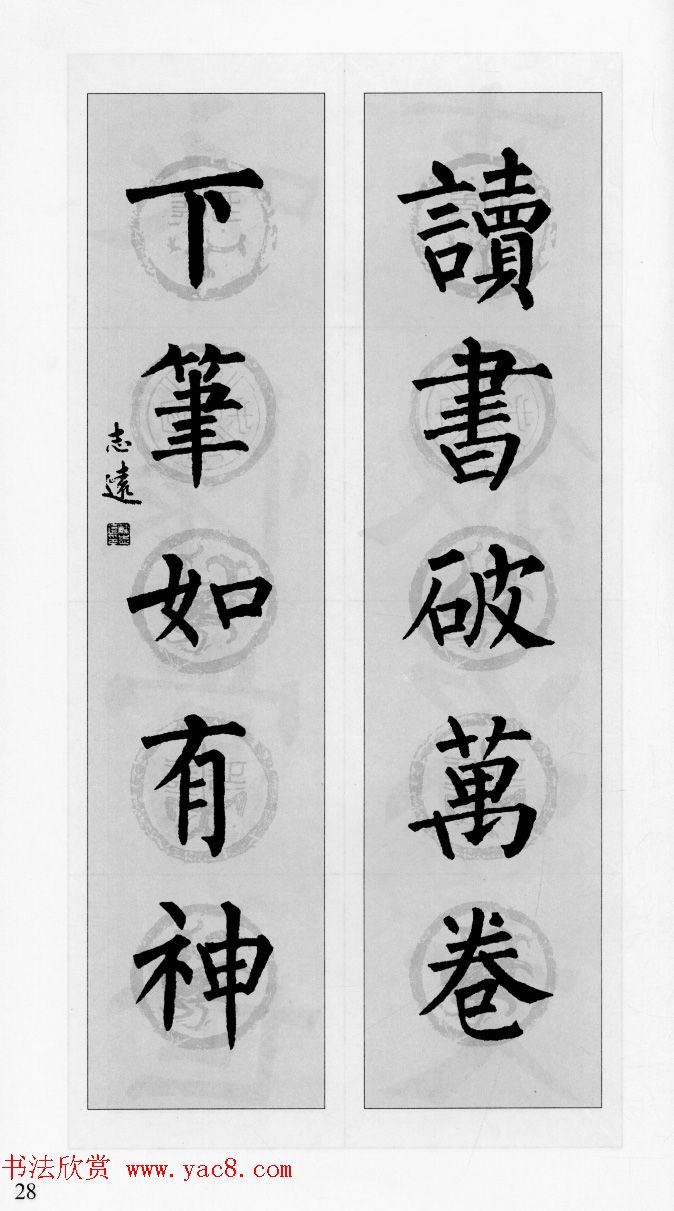 讀書破萬卷
下筆如有神
志遠
书法欣赏 www.yac8.com
28